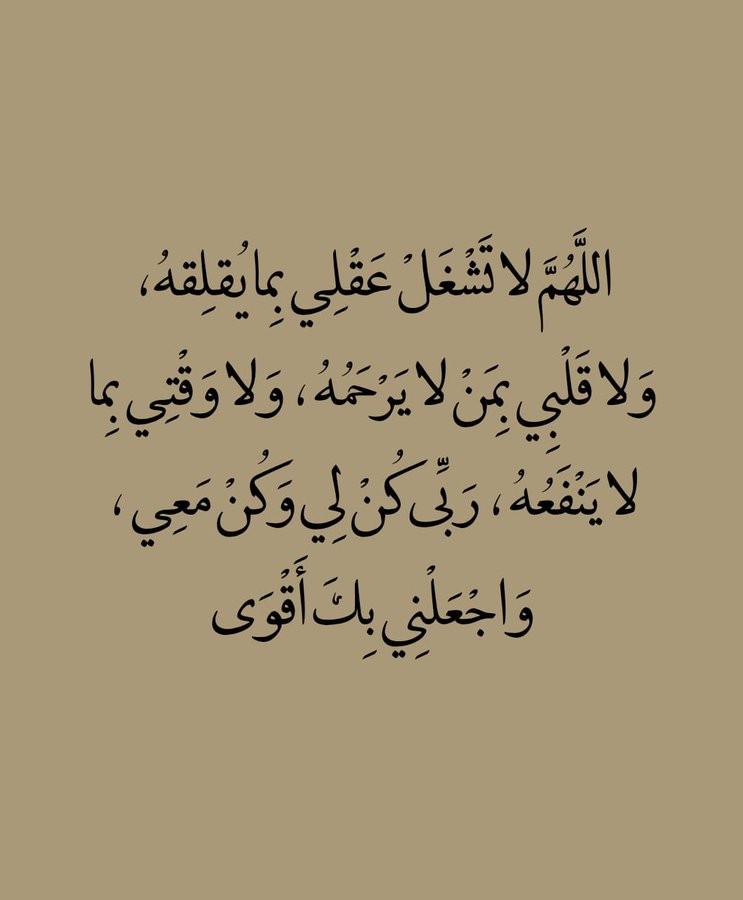 اللَّهُمَّ لا تَشْغَلْ عَقْلِي بِما يُقلِقهُ،
وَلا قَلْبِي بِمَنْ لا يَرْحَمُهُ، وَلا وَقْتِي بِما
لا يَنْفَعُهُ، رَبِّى كُنْ لِي وَكُنْ مَعِي،
وَاجْعَلْنِي بِكَ أَقْوَى